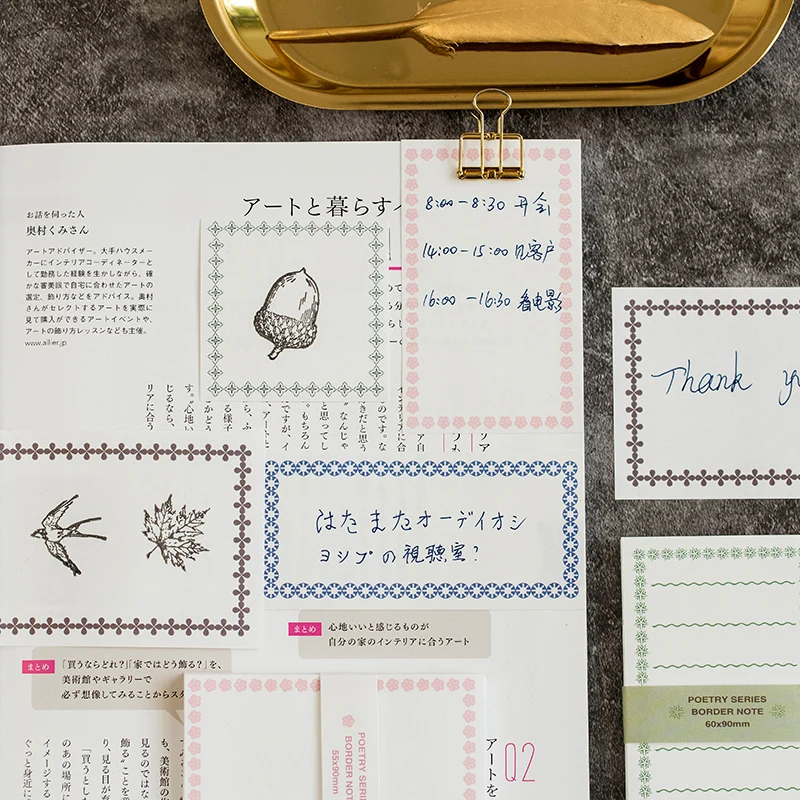 お話を伺った人
奥村くみさん
アートアドバイザー。大手ハウスメー
カーにインテリアコーディネーターと
して勤務した経験を生かしながら、確
かな審美眼で自宅に合わせたアートの
選定、飾り方などをアドバイス。奥村
さんがセレクトするアートを実際に
見て購入ができるアートイベントや、
アートの飾り方レッスンなども主催。
www.allier.jp
アートと暮らす
8:00-8:30 开会
14:00-15:00 见客户
16:00-16:30 看电影
Thank
はたまたオーデイオシ
ヨシプの視聴室?
まとめ
心地いいと感じるものが
自分の家のインテリアに合うアート
まとめ
「買うならどれ?」「家ではどう飾る?」を、
美術館やギャラリーで
必ず想像してみることからス
POETRY SERIES
BORDER NOTE
60x90mm
POETRY SERIE
BORDER NOTE
55x90mm
Q2
アートを
も、美術館の
見るのではな
り、見る目が
「買うとした
のあの場所に
イメージする
ぐっと身近に